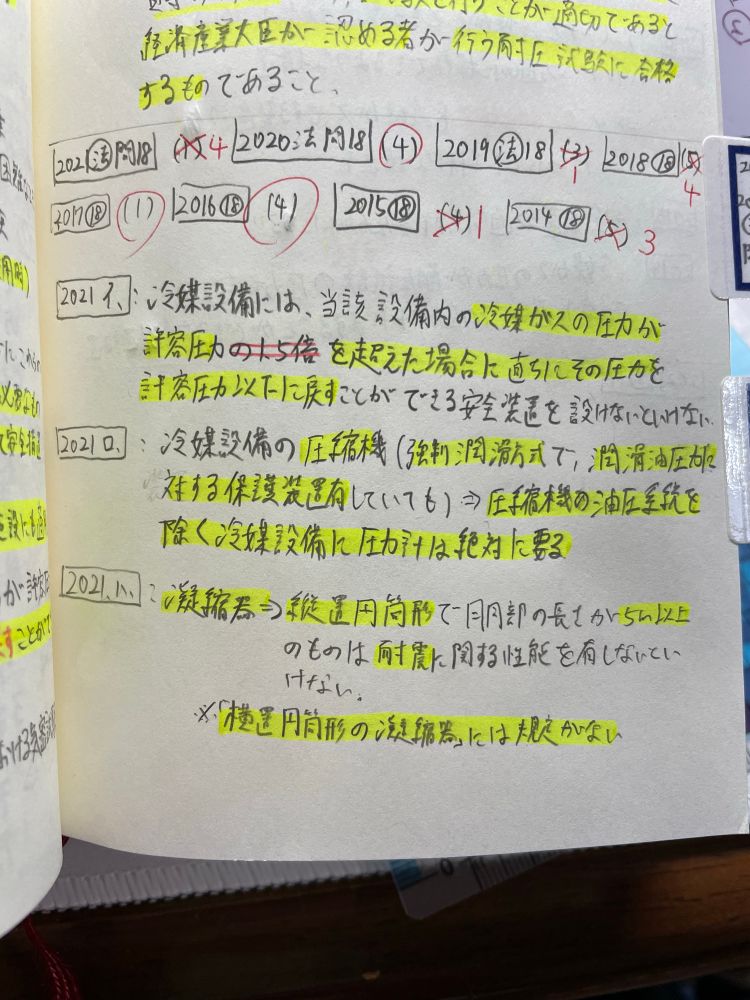 ことが適切であると
経済産業大臣が認める者が行う耐圧試験に合格
するものであること。
2021法問18 (1)4 2020法問18 (4) 2019法18 (3)1 2018⑱(5)4
2017⑱ (1) 2016⑱ (4) 2015⑱ (4)1 2014⑱ (5)3
2021イ.:冷媒設備には、当該設備内の冷媒ガスの圧力が
許容圧力の1.5倍を超えた場合に直ちにその圧力を
許容圧力以下に戻すことができる安全装置を設けないといけない.
2021ロ.:冷媒設備の圧縮機(強制潤滑方式で,潤滑油圧力に
対する保護装置有していても)⇒圧縮機の油圧系統を
除く冷媒設備に圧力計は絶対に要る
2021.ハ.:凝縮器⇒縦置円筒形で胴部の長さが5m以上
のものは耐震に関する性能を有しないとい
けない.
※「横置円筒形の凝縮器」には規定がない